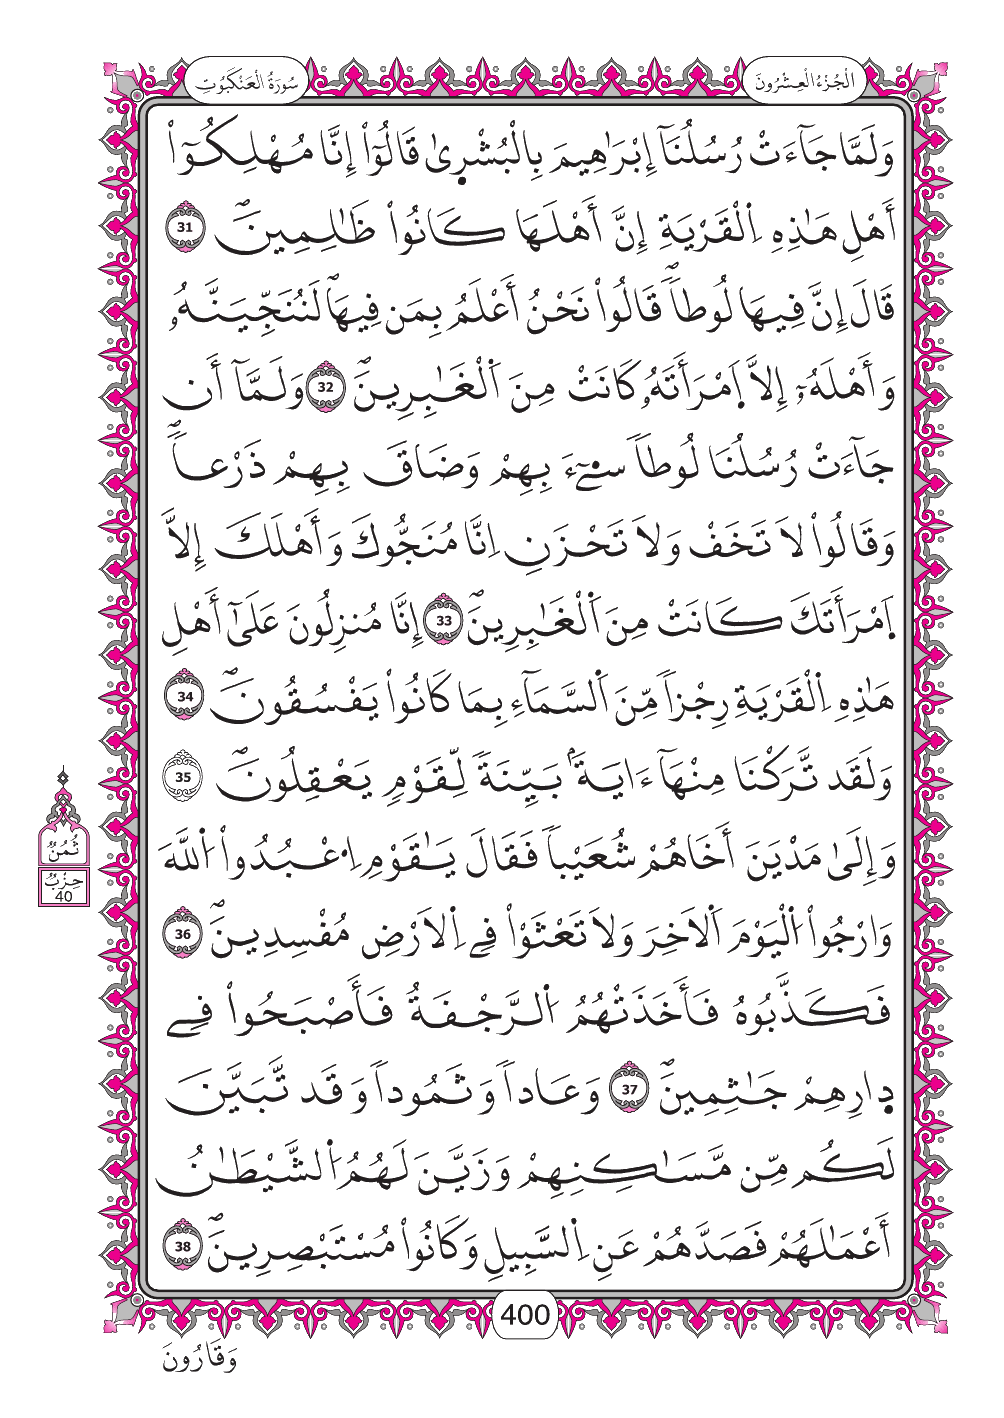 سُورَةُ الْعَنْكَبُوتِ
الْجُزْءُ الْعِشْرُونَ
وَلَمَّا جَآءَتْ رُسُلُنَآ إِبْرَاهِيمَ بِالْبُشْرٜىٰ قَالُوٓاْ إِنَّا مُهْلِكُوٓاْ
أَهْلِ هَٰذِهِ اِ۬لْقَرْيَةِ إِنَّ أَهْلَهَا كَانُواْ ظَٰلِمِينَۖ 31
قَالَ إِنَّ فِيهَا لُوطاٗۖ قَالُواْ نَحْنُ أَعْلَمُ بِمَن فِيهَاۖ لَنُنَجِّيَنَّهُۥ
وَأَهْلَهُۥٓ إِلَّا اَ۪مْرَأَتَهُۥ كَانَتْ مِنَ اَ۬لْغَٰبِرِينَۖ 32 وَلَمَّآ أَن
جَآءَتْ رُسُلُنَا لُوطاٗ سِےٓءَ بِهِمْ وَضَاقَ بِهِمْ ذَرْعاٗۖ
وَقَالُواْ لَا تَخَفْ وَلَا تَحْزَنِ اِنَّا مُنَجُّوكَ وَأَهْلَكَ إِلَّا
اَ۪مْرَأَتَكَ كَانَتْ مِنَ اَ۬لْغَٰبِرِينَۖ 33 إِنَّا مُنزِلُونَ عَلَىٰٓ أَهْلِ
هَٰذِهِ اِ۬لْقَرْيَةِ رِجْزاٗ مِّنَ اَ۬لسَّمَآءِ بِمَا كَانُواْ يَفْسُقُونَۖ 34
وَلَقَد تَّرَكْنَا مِنْهَآ ءَايَةَۢ بَيِّنَةٗ لِّقَوْمٖ يَعْقِلُونَۖ 35
وَإِلَىٰ مَدْيَنَ أَخَاهُمْ شُعَيْباٗ فَقَالَ يَٰقَوْمِ اِ۟عْبُدُواْ اُ۬للَّهَ
وَارْجُواْ اُ۬لْيَوْمَ اَ۬لَاخِرَ وَلَا تَعْثَوْاْ فِے اِ۬لَارْضِ مُفْسِدِينَۖ 36
فَكَذَّبُوهُ فَأَخَذَتْهُمُ اُ۬لرَّجْفَةُ فَأَصْبَحُواْ فِے
دٜارِهِمْ جَٰثِمِينَۖ 37 وَعَاداٗ وَثَمُوداٗ وَقَد تَّبَيَّنَ
لَكُم مِّن مَّسَٰكِنِهِمْ وَزَيَّنَ لَهُمُ اُ۬لشَّيْطَٰنُ
أَعْمَٰلَهُمْ فَصَدَّهُمْ عَنِ اِ۬لسَّبِيلِ وَكَانُواْ مُسْتَبْصِرِينَۖ 38
ثُمُنُ
حِزْبُ
40
400
وَقَارُونَ